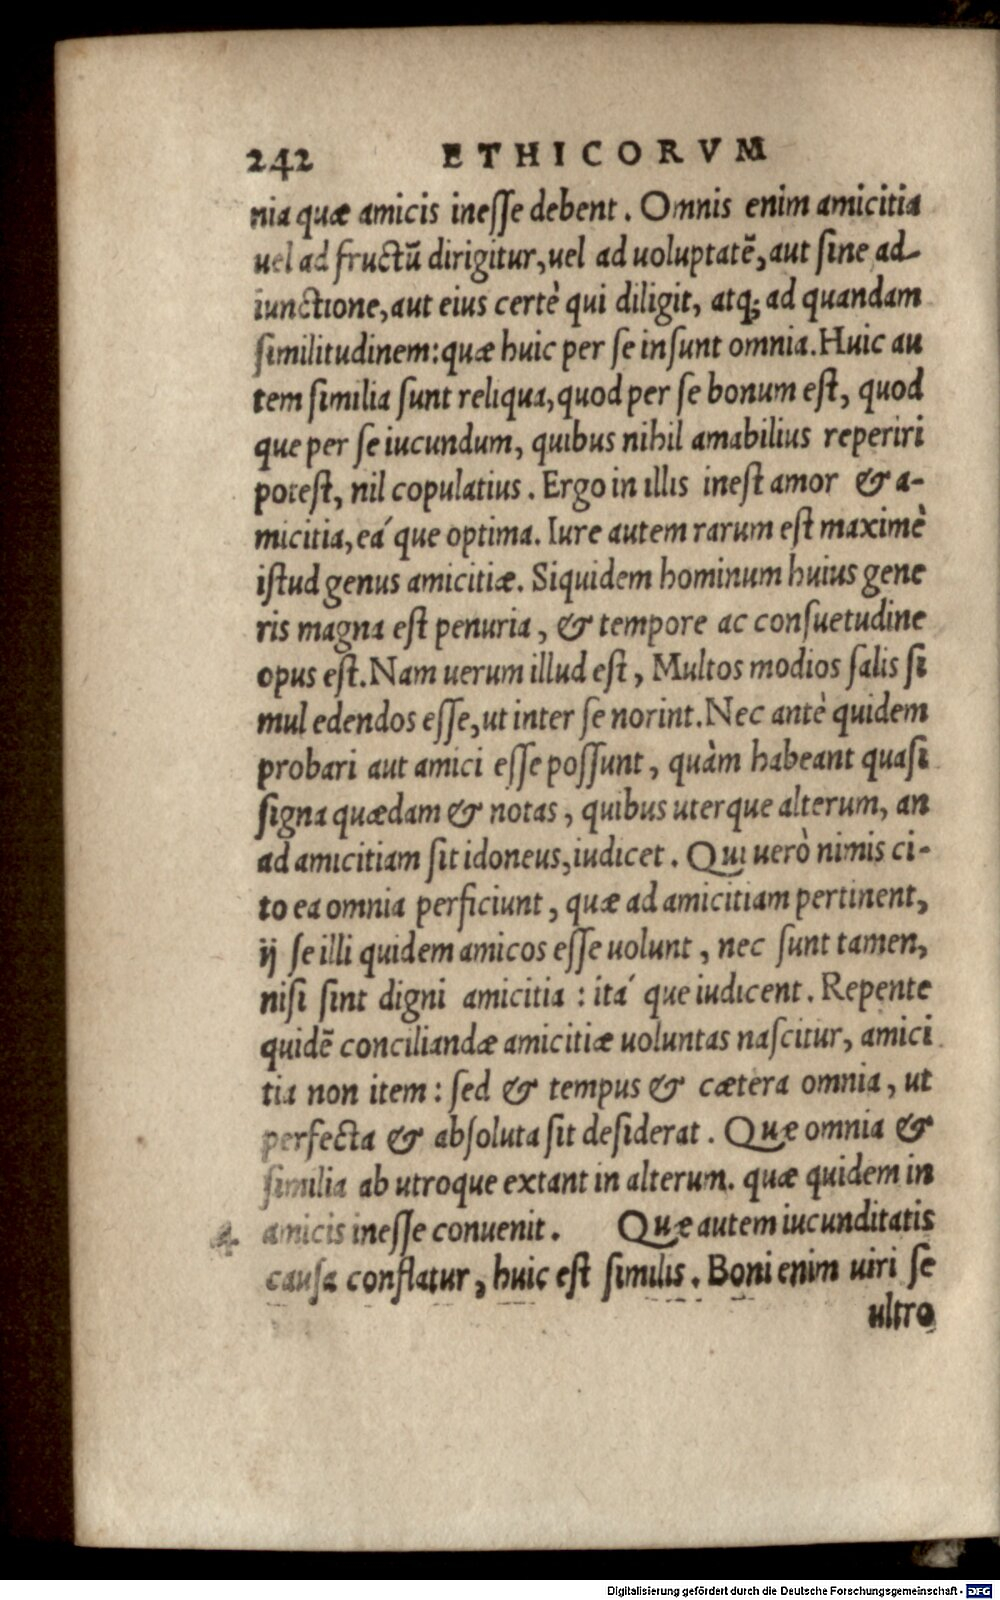 242 ETHICORVM
nia quæ amicis inesse debent. Omnis enim amicitia
uel ad fructū dirigitur, uel ad uoluptatē, aut sine ad-
iunctione, aut eius certè qui diligit, atq; ad quandam
similitudinem: quæ huic per se insunt omnia. Huic au
tem similia sunt reliqua, quod per se bonum est, quod
que per se iucundum, quibus nihil amabilius reperiri
potest, nil copulatius. Ergo in illis inest amor & a-
micitia, eá que optima. Iure autem rarum est maximè
istud genus amicitiæ. Siquidem hominum huius gene
ris magna est penuria, & tempore ac consuetudine
opus est. Nam uerum illud est, Multos modios salis si
mul edendos esse, ut inter se norint. Nec antè quidem
probari aut amici esse possunt, quàm habeant quasi
signa quædam & notas, quibus uterque alterum, an
ad amicitiam sit idoneus, iudicet. Qui uerò nimis ci-
to ea omnia perficiunt, quæ ad amicitiam pertinent,
ij se illi quidem amicos esse uolunt, nec sunt tamen,
nisi sint digni amicitia: itá que iudicent. Repente
quidē conciliandæ amicitiæ uoluntas nascitur, amici
tia non item: sed & tempus & cætera omnia, ut
perfecta & absoluta sit desiderat. Quæ omnia &
similia ab utroque extant in alterum. quæ quidem in
4. amicis inesse conuenit. Quæ autem iucunditatis
causa conflatur, huic est similis. Boni enim uiri se
ultro
Digitalisierung gefördert durch die Deutsche Forschungsgemeinschaft - DFG